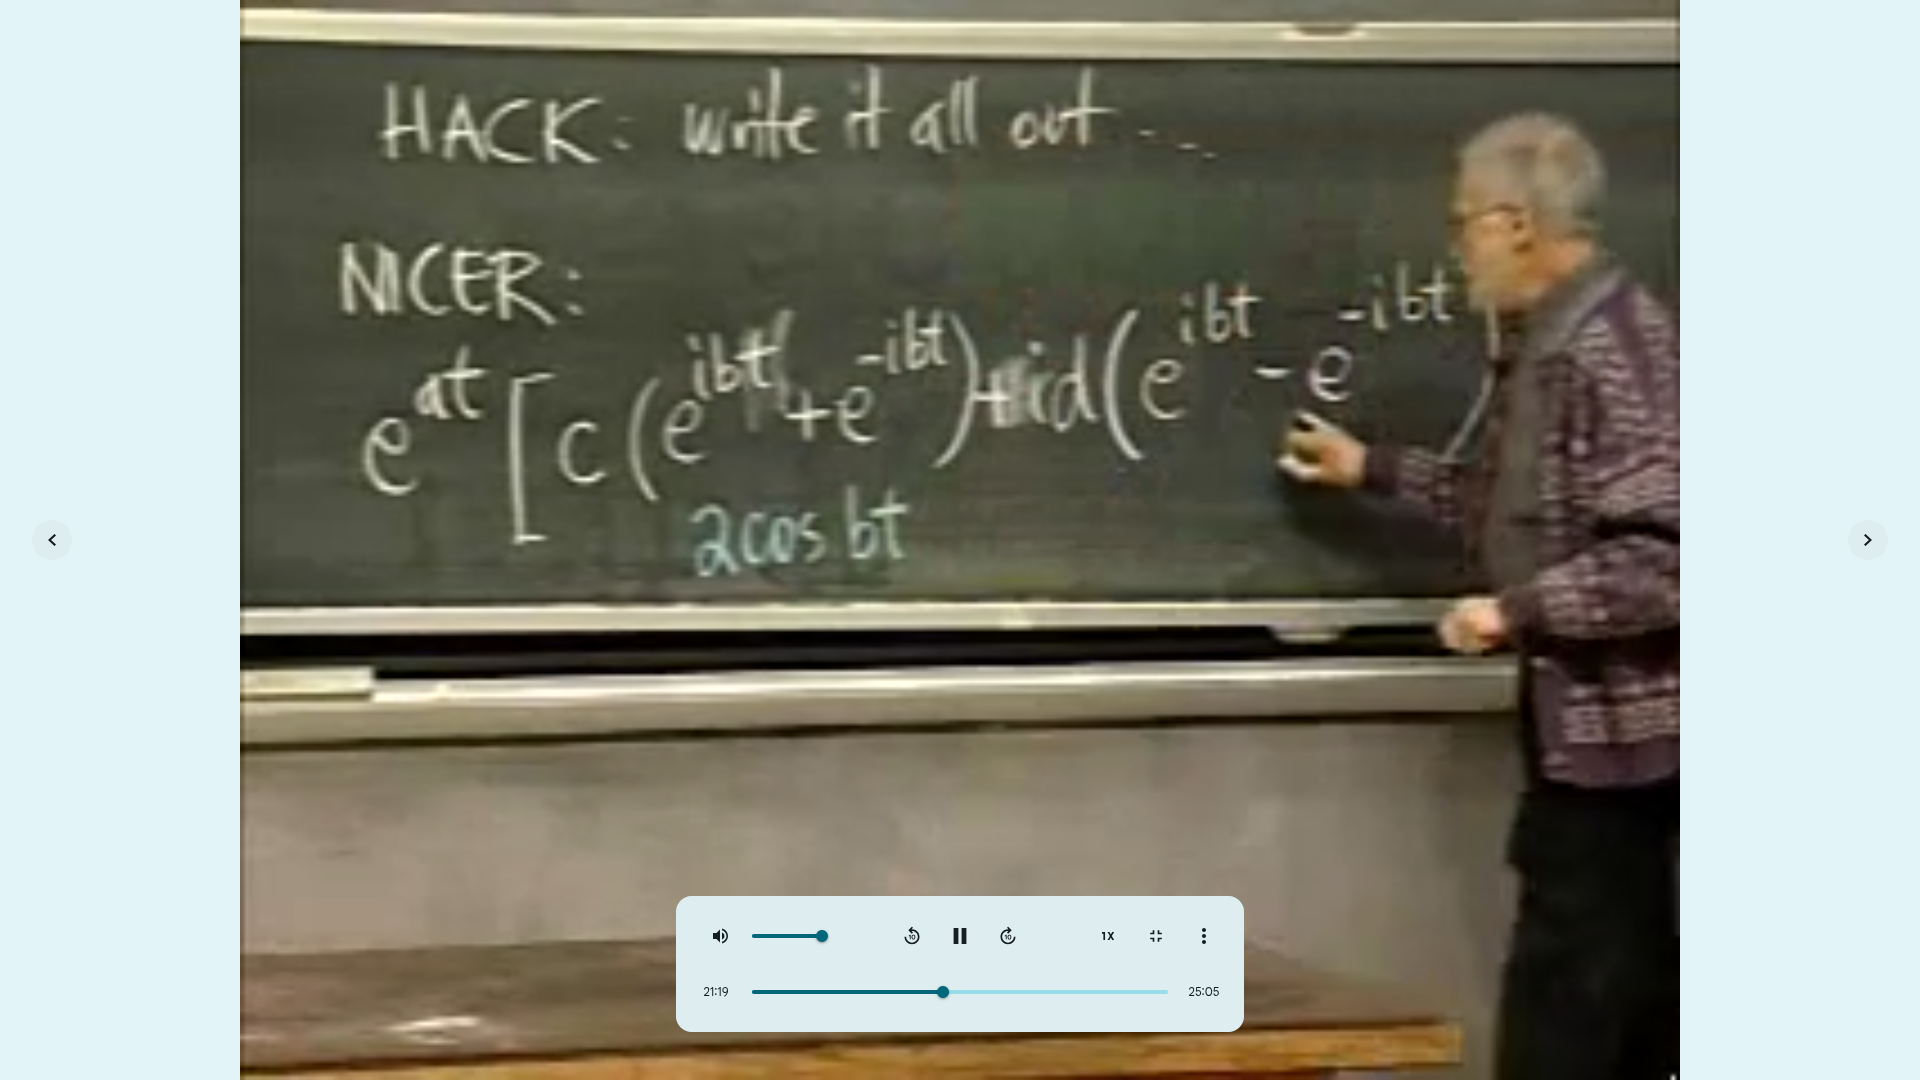 HACK: write it all out ...
NICER:
e^at [c(e^ibt + e^-ibt) + id(e^ibt - e^-ibt)
2cos bt
10 10 1X
21:19 25:05